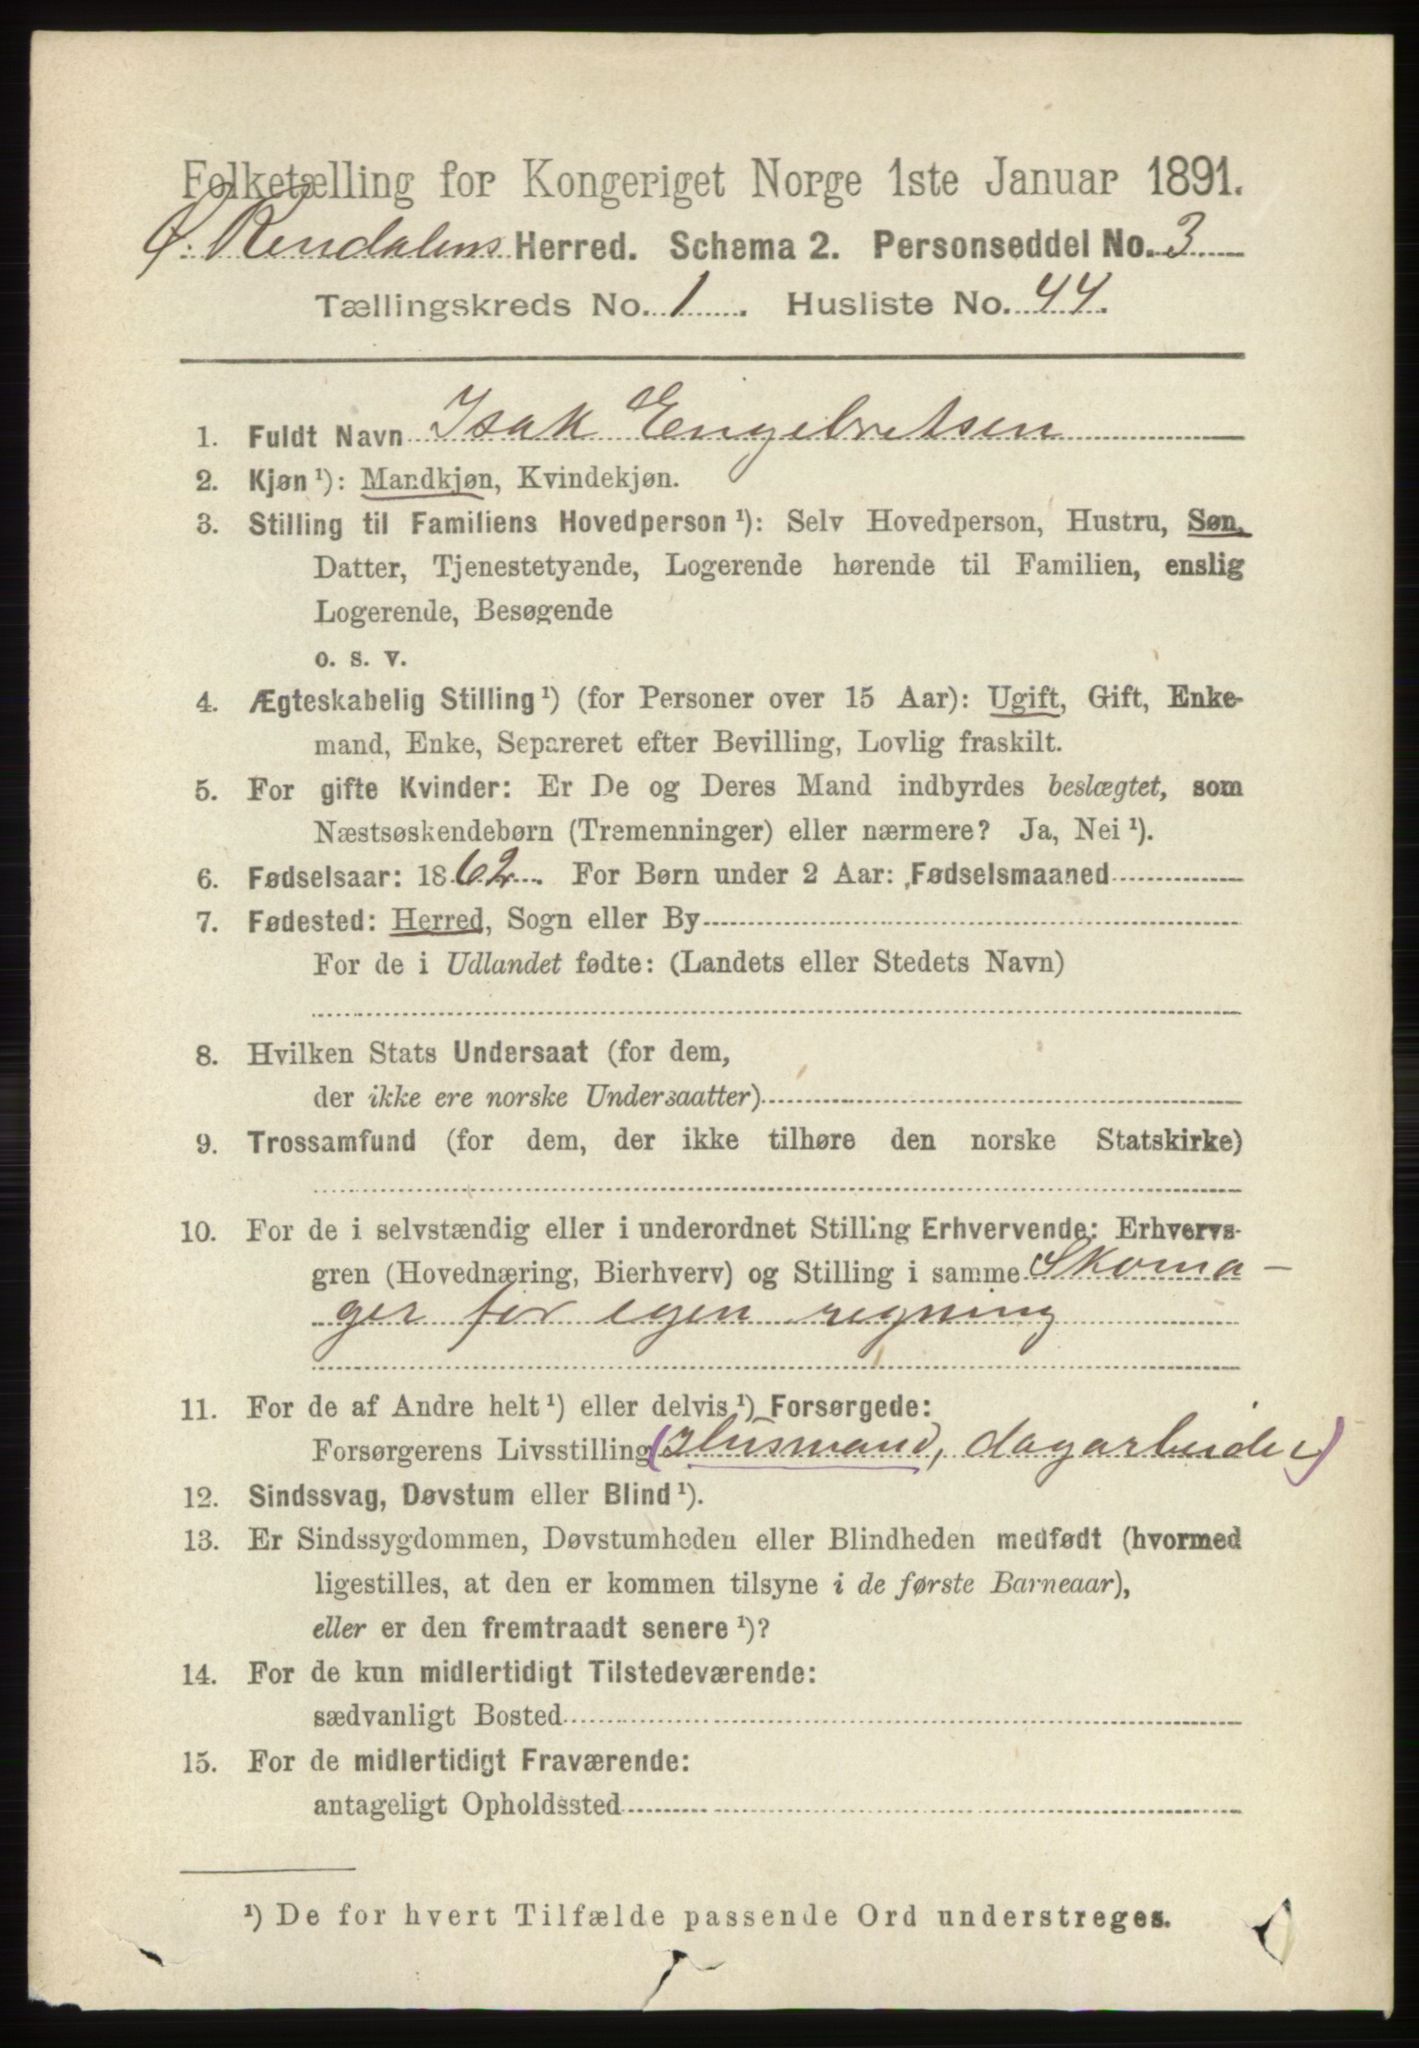 Folketælling for Kongeriget Norge 1ste Januar 1891.
Ø. Rendalens Herred. Schema 2. Personseddel No. 3
Tællingskreds No. 1. Husliste No. 44.
1. Fuldt Navn Isak Engebretsen
2. Kjøn ¹): Mandkjøn, Kvindekjøn.
3. Stilling til Familiens Hovedperson ¹): Selv Hovedperson, Hustru, Søn,
Datter, Tjenestetyende, Logerende hørende til Familien, enslig
Logerende, Besøgende
o. s. v.
4. Ægteskabelig Stilling ¹) (for Personer over 15 Aar): Ugift, Gift, Enke-
mand, Enke, Separeret efter Bevilling, Lovlig fraskilt.
5. For gifte Kvinder: Er De og Deres Mand indbyrdes beslægtet, som
Næstsøskendebørn (Tremenninger) eller nærmere? Ja, Nei ¹).
6. Fødselsaar: 1862. For Børn under 2 Aar: Fødselsmaaned
7. Fødested: Herred, Sogn eller By
For de i Udlandet fødte: (Landets eller Stedets Navn)
8. Hvilken Stats Undersaat (for dem,
der ikke ere norske Undersaatter)
9. Trossamfund (for dem, der ikke tilhøre den norske Statskirke)
10. For de i selvstændig eller i underordnet Stilling Erhvervende: Erhvervs-
gren (Hovednæring, Bierhverv) og Stilling i samme Skoma-
ger for egen regning
11. For de af Andre helt ¹) eller delvis ¹) Forsørgede:
Forsørgerens Livsstilling (Husmand, dagarbeider)
12. Sindssvag, Døvstum eller Blind ¹).
13. Er Sindssygdommen, Døvstumheden eller Blindheden medfødt (hvormed
ligestilles, at den er kommen tilsyne i de første Barneaar),
eller er den fremtraadt senere ¹)?
14. For de kun midlertidigt Tilstedeværende:
sædvanligt Bosted
15. For de midlertidigt Fraværende:
antageligt Opholdssted
¹) De for hvert Tilfælde passende Ord understreges.